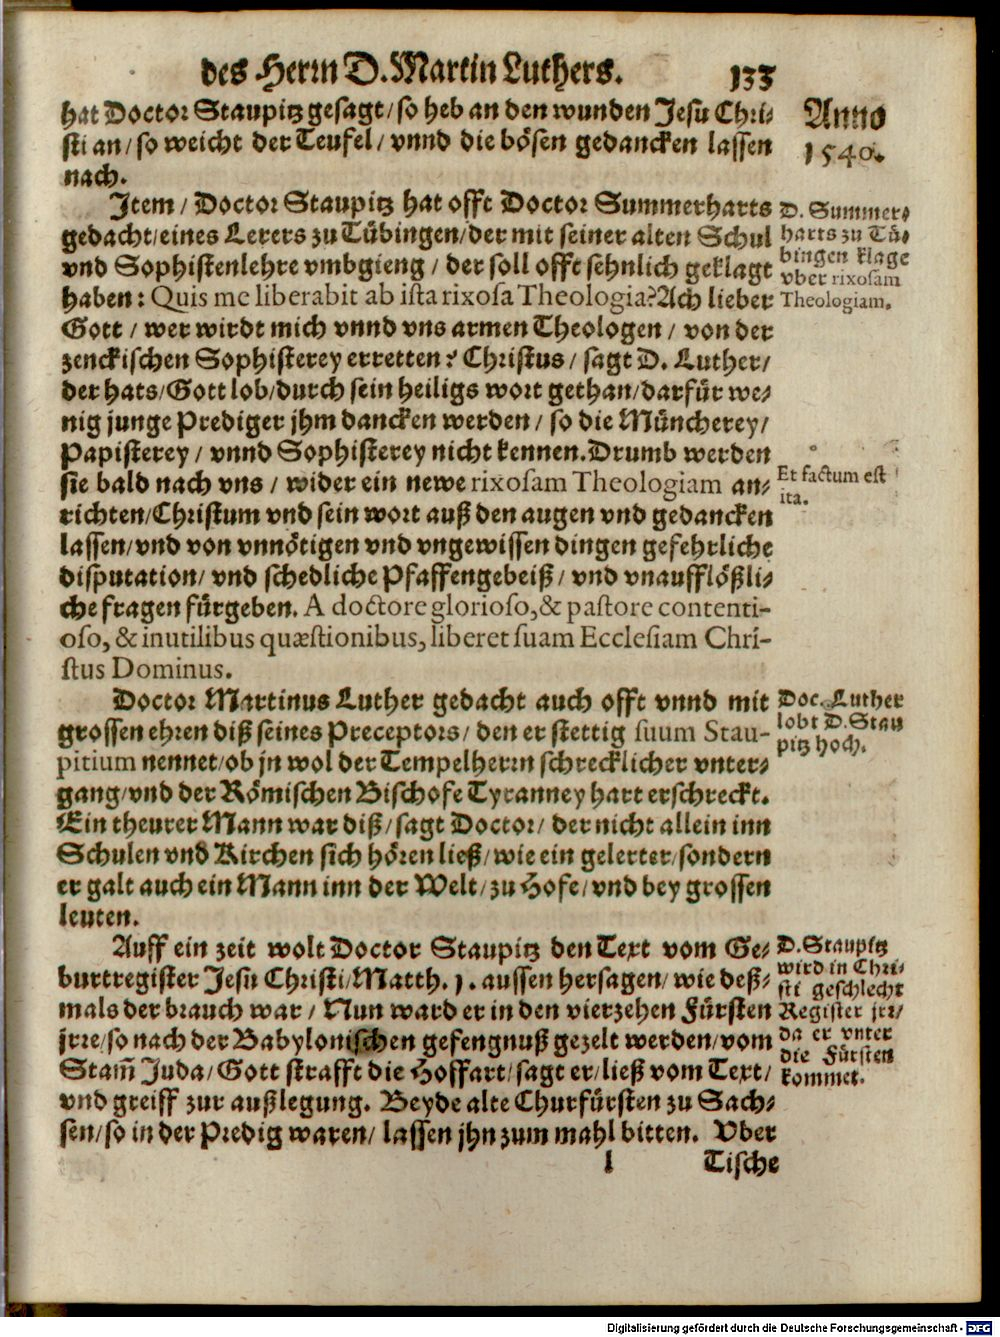 des Herrn D. Martin Luthers. 133
Anno
1540.
hat Doctor Staupitz gesagt / so heb an den wunden Jesu Chri-
sti an / so weicht der Teufel / vnnd die bösen gedancken lassen
nach.
Item / Doctor Staupitz hat offt Doctor Summerharts
gedacht / eines Lerers zu Tübingen / der mit seiner alten Schul
vnd Sophistenlehre vmbgieng / der soll offt sehnlich geklagt
haben: Quis me liberabit ab ista rixosa Theologia? Ach lieber
Gott / wer wirdt mich vnnd vns armen Theologen / von der
zenckischen Sophisterey erretten? Christus / sagt D. Luther /
der hats / Gott lob / durch sein heiligs wort gethan / darfür we-
nig junge Prediger jhm dancken werden / so die Müncherey /
Papisterey / vnnd Sophisterey nicht kennen. Drumb werden
sie bald nach vns / wider ein newe rixosam Theologiam an-
richten / Christum vnd sein wort auß den augen vnd gedancken
lassen / vnd von vnnötigen vnd vngewissen dingen gefehrliche
disputation / vnd schedliche Pfaffengebeiß / vnd vnaufflößli-
che fragen fürgeben. A doctore glorioso, & pastore contenti-
oso, & inutilibus quæstionibus, liberet suam Ecclesiam Chri-
stus Dominus.
D. Summer-
harts zu Tü-
bingen klage
vber rixosam
Theologiam.
Et factum est
ita.
Doctor Martinus Luther gedacht auch offt vnnd mit
grossen ehren diß seines Preceptors / den er stettig suum Stau-
pitium nennet / ob jn wol der Tempelherrn schrecklicher vnter-
gang / vnd der Römischen Bischofe Tyranney hart erschreckt.
Ein theurer Mann war diß / sagt Doctor / der nicht allein inn
Schulen vnd Kirchen sich hören ließ / wie ein gelerter / sondern
er galt auch ein Mann inn der Welt / zu Hofe / vnd bey grossen
leuten.
Doc. Luther
lobt D. Stau
pitz hoch.
Auff ein zeit wolt Doctor Staupitz den Text vom Ge-
burtregister Jesu Christi / Matth. 1. aussen hersagen / wie deß-
mals der brauch war / Nun ward er in den vierzehen Fürsten
jrre / so nach der Babylonischen gefengnuß gezelt werden / vom
Stam̃ Juda / Gott strafft die Hoffart / sagt er / ließ vom Text /
vnd greiff zur außlegung. Beyde alte Churfürsten zu Sach-
sen / so in der Predig waren / lassen jhn zum mahl bitten. Vber
D. Staupitz
wird in Chri-
sti geschlecht
Register jrr /
da er vnter
die Fürsten
kommet.
l Tische
Digitalisierung gefördert durch die Deutsche Forschungsgemeinschaft - DFG